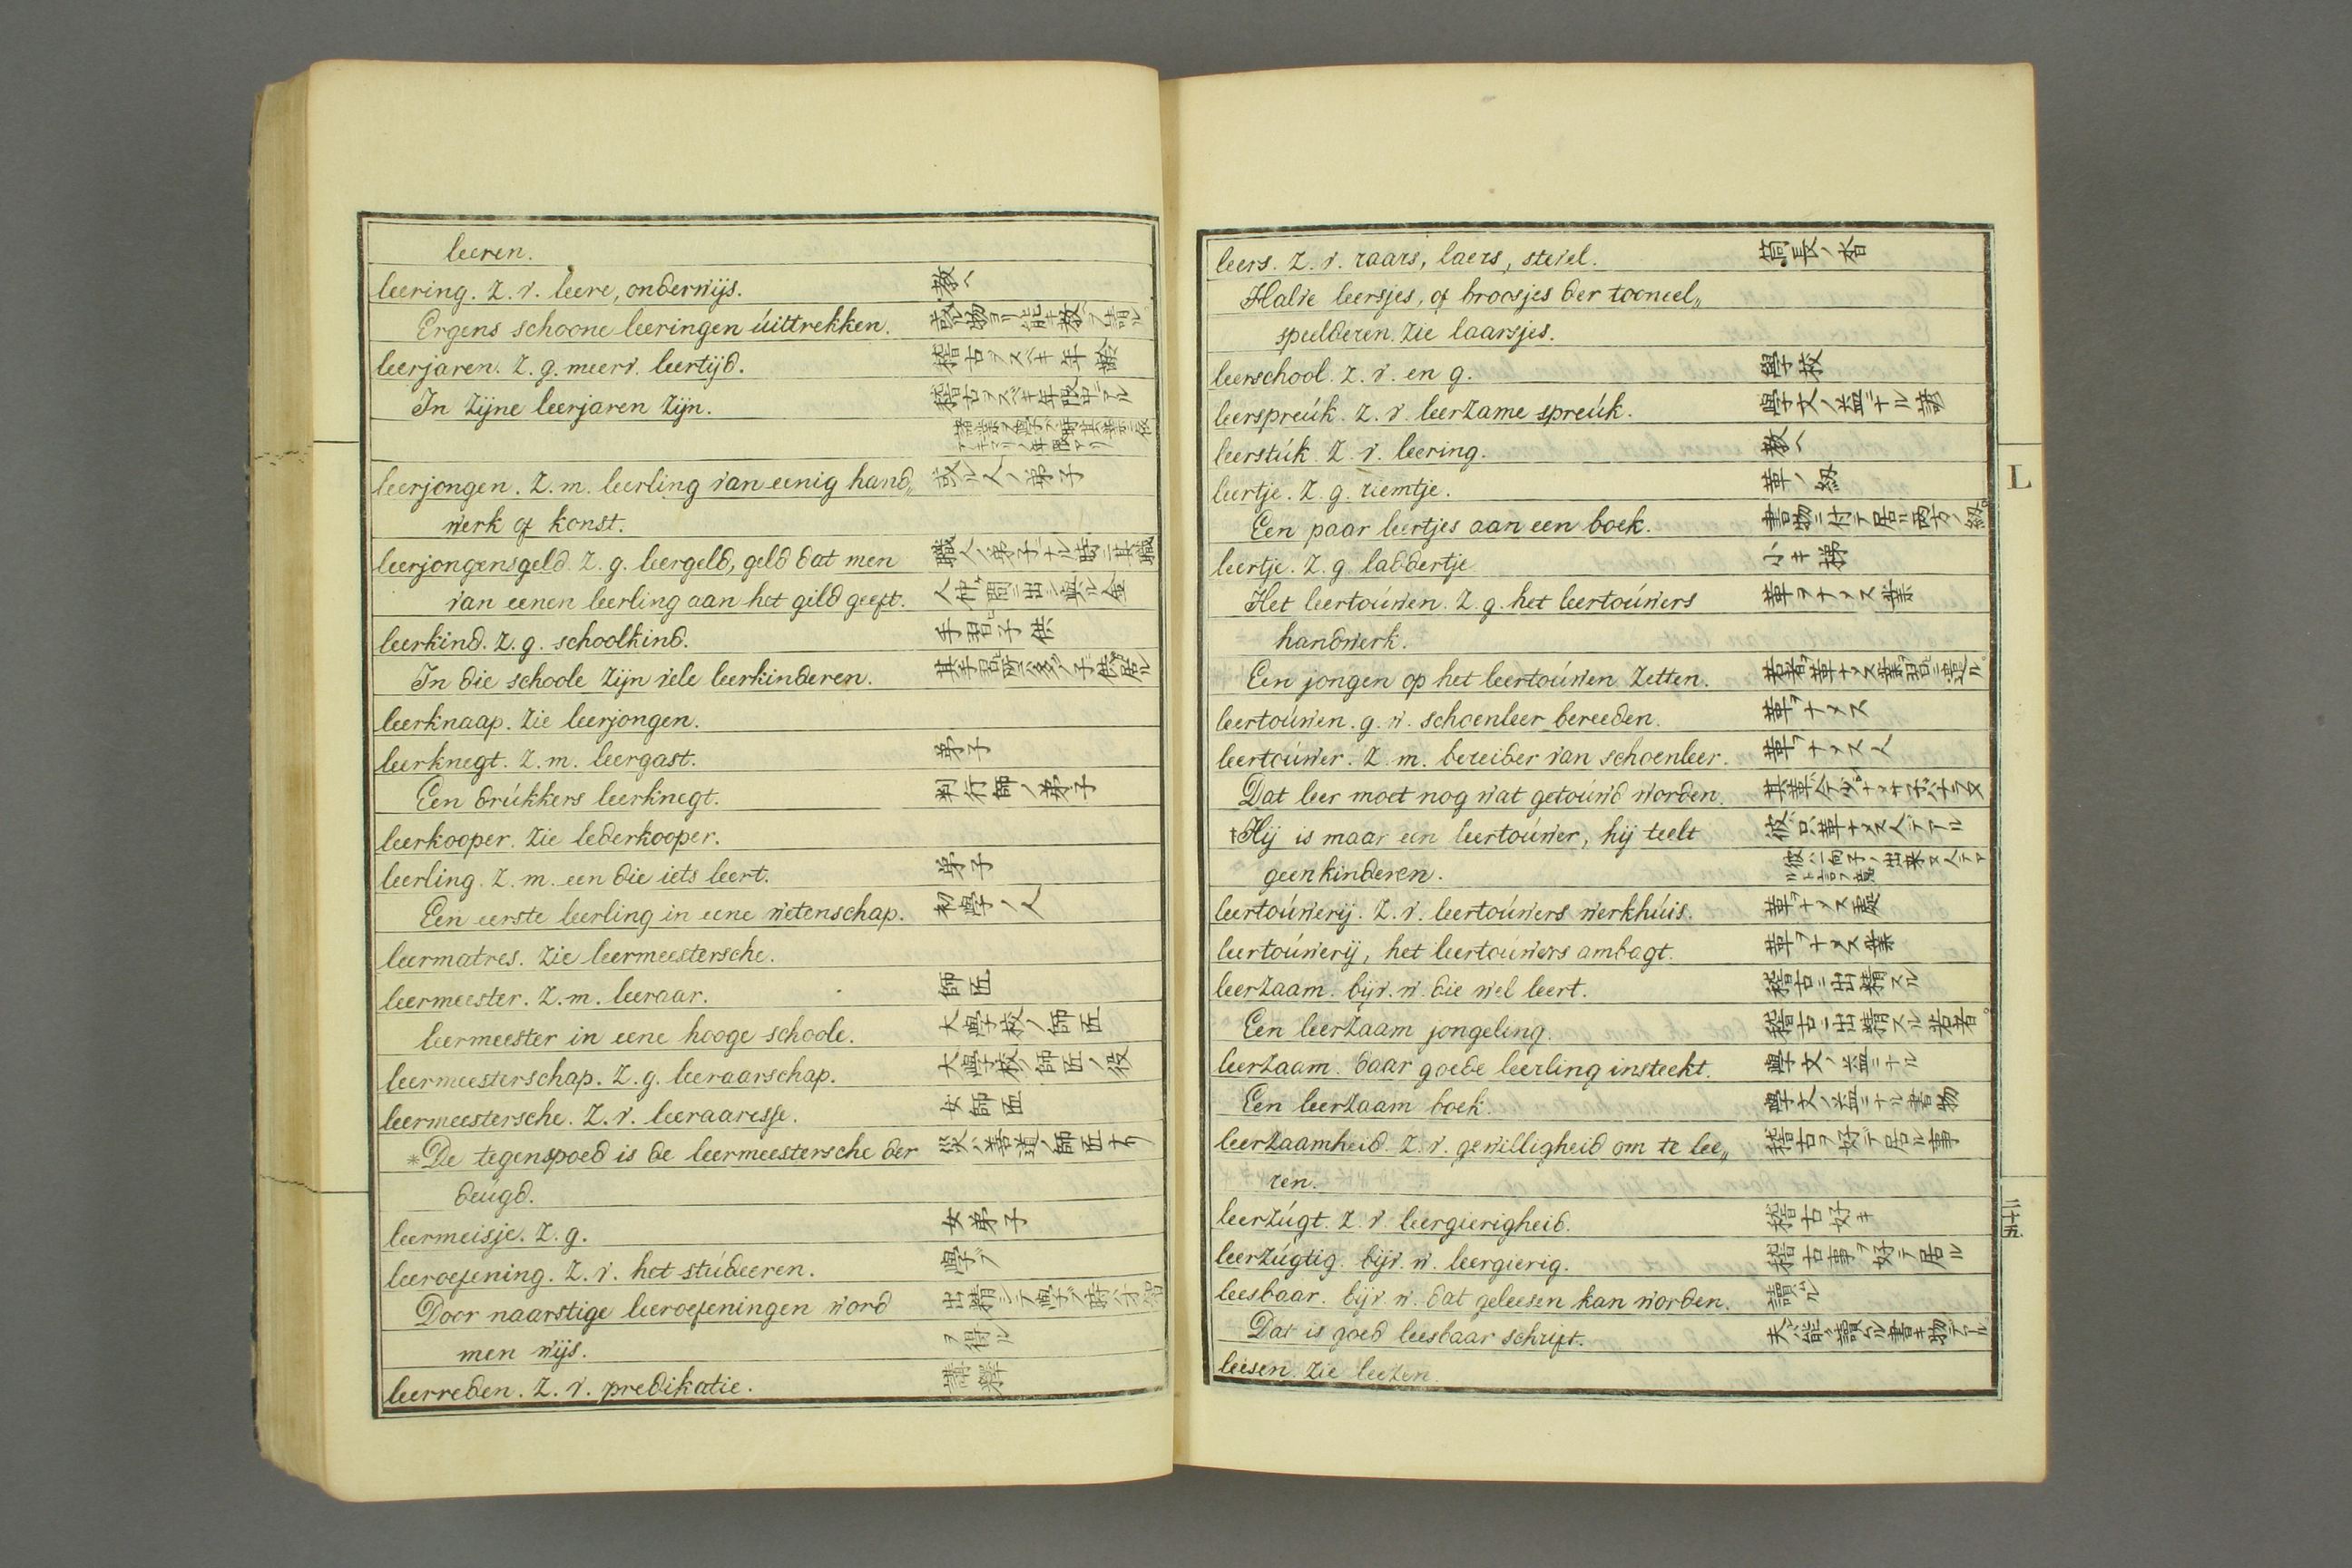 leeren.
leering. z.v. leere, onderwijs. 教ヘ
Ergens schoone leeringen úittrekken.
leerjaren. z.g. meerv. leertijd. 稽古ヲスベキ年齢
In zijne leerjaren zijn. 稽古ヲスベキ年限中デアル
leerjongen. z.m. leerling van eenig hand„ 或ル人ノ弟子
werk of konst.
leerjongensgeld. z.g. leergeld, geld dat men 職人ノ弟子ナル時ニ其職
van eenen leerling aan het gild geeft. 人仲間ニ出シ與ル金
leerkind. z.g. schoolkind. 手習子供
In die schoole zijn vele leerkinderen. 其手習所ニ多ク子供ガ居ル
leerknaap. zie leerjongen.
leerknegt. z.m. leergast. 弟子
Een drúkkers leerknegt. 判行師ノ弟子
leerkooper. zie lederkooper.
leerling. z.m. een die iets leert. 弟子
Een eerste leerling in eene wetenschap. 初學ノ人
leermatres. zie leermeestersche.
leermeester. z.m. leeraar. 師匠
leermeester in eene hooge schoole. 大學校ノ師匠
leermeesterschap. z.g. leeraarschap. 大學校ノ師匠ノ役
leermeestersche. z.v. leeraaresse. 女師匠
*De tegenspoed is de leermeestersche der 災ハ善道ノ師匠ナリ
deúgd.
leermeisje. z.g. 女弟子
leeroefening. z.v. het stúdeeren. 學ブ
Door naarstige leeroefeningen word 出精シテ學ブ時ハ才智
men wijs. ヲ得ル
leerreden. z.v. predikatie. 講釋
leers. z.v. raars, laers, stevel. 筒長ノ沓
Halve leersjes, of broosjes der tooneel„
speelderen. zie laarsjes.
leerschool. z.v. en g. 學校
leerspreúk. z.v. leerzame spreúk. 學文ノ益ニナル諺
leerstúk. z.v. leering. 教ヘ
leertje. z.g. riemtje. 革ノ紐
Een paar leertjes aan een boek. 書物ニ付テ居ル両方ノ紐
leertje. z.g. laddertje 小キ梯
Het leertoúwen. z.g. het leertoúwers 革ヲナメス業
handwerk.
Een jongen op het leertoúwen zetten.
leertoúwen. g.w. schoenleer bereeden. 革ヲナメス
leertoúwer. z.m. bereider van schoenleer. 革ヲナメス人
Dat leer moet nog wat getoúwd worden.
†Hij is maar een leertoúwer, hij teelt 彼ハ只革ナメス人デアル
geen kinderen.
leertoúwerij. z.v. leertoúwers werkhúis. 革ヲナメス處
leertoúwerij, het leertoúwers ambagt. 革ヲナメス業
leerzaam. bijv.w. die wel leert. 稽古ニ出精スル
Een leerzaam jongeling. 稽古ニ出精スル若者
leerzaam. daar goede leerling insteekt. 學文ノ益ニナル
Een leerzaam boek. 學文ノ益ニナル書物
leerzaamheid. z.v. gewilligheid om te lee„ 稽古ヲ好デ居ル事
ren.
leerzúgt. z.v. leergierigheid. 稽古好キ
leerzúgtig. bijv.w. leergierig. 稽古事ヲ好テ居ル
leesbaar. bijv.w. dat geleesen kan worden. 讀ル
Dat is goed leesbaar schrift. 夫ハ能ク讀ル書キ物デアル
leesen. zie leezen.
L
二十五